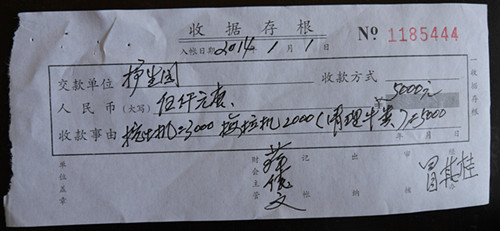 收据存根
No 1185444
入帐日期 2014年1月1日
交款单位 护生园 收款方式
人民币(大写) 伍仟元质 ¥5000元
收款事由 挖土机=3000 拖拉机2000(清理牛粪)=5000
年 月 日
单位盖章 财会主管 记帐 出纳 审核 经办
一收据存根